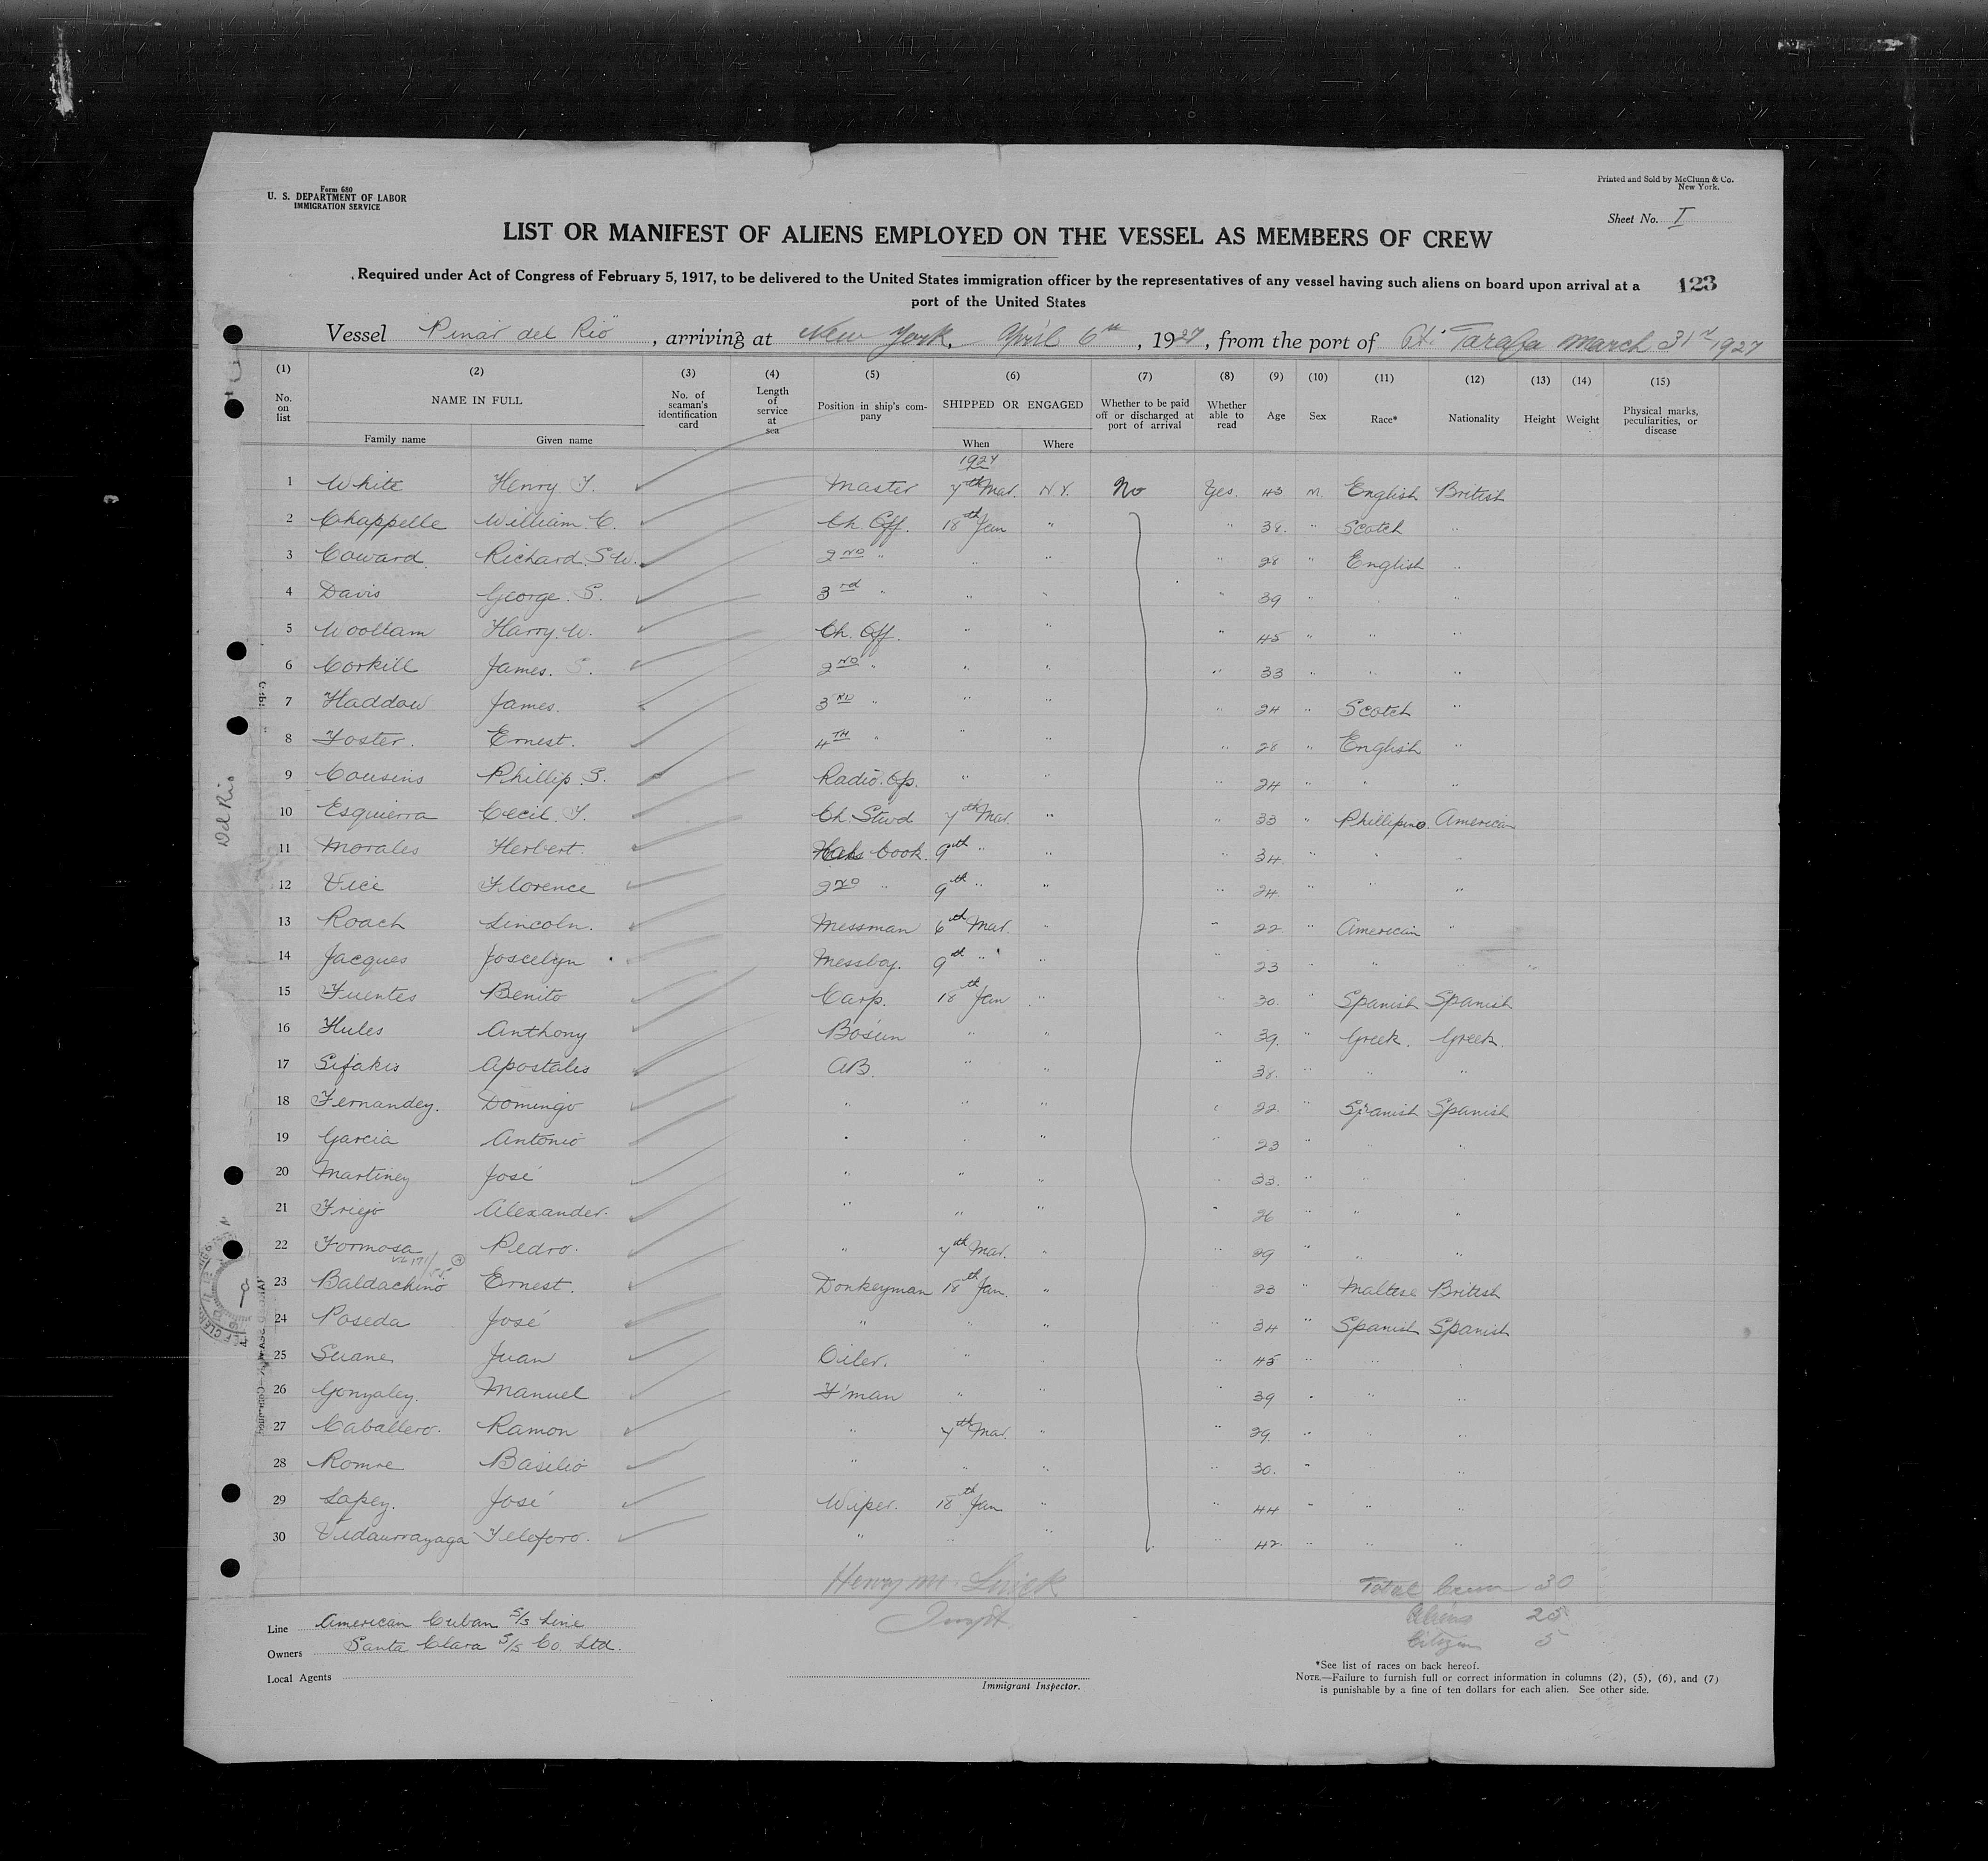 Form 680
U. S. DEPARTMENT OF LABOR
IMMIGRATION SERVICE
Printed and Sold by McClunn & Co.
New York.
Sheet No. I
LIST OR MANIFEST OF ALIENS EMPLOYED ON THE VESSEL AS MEMBERS OF CREW
Required under Act of Congress of February 5, 1917, to be delivered to the United States immigration officer by the representatives of any vessel having such aliens on board upon arrival at a
port of the United States
123
Vessel "Pinar del Rio", arriving at New York, April 6th, 1927, from the port of Pt. Tarafa March 31st 1927
(1) (2) (3) (4) (5) (6) (7) (8) (9) (10) (11) (12) (13) (14) (15)
No. on list NAME IN FULL No. of seaman's identification card Length of service at sea Position in ship's company SHIPPED OR ENGAGED Whether to be paid off or discharged at port of arrival Whether able to read Age Sex Race* Nationality Height Weight Physical marks, peculiarities, or disease
Family name Given name When Where
1927
1 White Henry T. Master 7th Mar. N.Y. No Yes. 43 M. English British
2 Chappelle William C. Ch. Off. 18th Jan " " 38. " Scotch "
3 Coward Richard S.W. 2ND " " " " 28 " English "
4 Davis George. S. 3rd " " " " 39 " " "
5 Woollam Harry. W. Ch. Off. " " " 45 " " "
6 Corkill James. S. 2ND " " " " 33 " " "
7 Haddow James. 3RD " " " " 24 " Scotch "
8 Foster. Ernest. 4TH " " " " 28 " English "
9 Cousins Phillip. S. Radio. Op. " " " 24 " " "
10 Esquierra Cecil. T. Ch. Stwd 7th Mar. " " 33 " Phillipino American
11 Morales Herbert. Cook. 9th " " " 34. " " "
12 Vici Florence 2ND " 9th " " " 24. " " "
13 Roach Lincoln. Messman 6th Mar. " " 22. " American "
14 Jacques Joscelyn Messboy. 9th " " " 23 " " "
15 Fuentes Benito Carp. 18th Jan " " 30. " Spanish Spanish
16 Hules Anthony Bosun " " " 39. " Greek. Greek.
17 Sifakis Apostalis AB. " " " 38. " " "
18 Fernandez. Domingo " " " " 22. " Spanish Spanish
19 Garcia Antonio " " " " 23 " " "
20 Martinez José " " " " 33. " " "
21 Friejo Alexander. " " " " 26 " " "
22 Formosa Pedro. " 7th Mar. " " 29 " " "
23 Baldachino Ernest. Donkeyman 18th Jan. " " 23 " Maltese British
24 Poseda José " " " " 34 " Spanish Spanish
25 Suane Juan Oiler. " " " 45 " " "
26 Gonzalez. Manuel F'man " " " 39 " " "
27 Caballero. Ramon " 7th Mar. " " 29. " " "
28 Romre Basilio " " " " 30. " " "
29 Lopez. José Wiper. 18th Jan " " 44 " " "
30 Vidaurrazaga Teleforo. " " " " 42. " " "
Del Rio
Henry M.
Inspt.
Total Crew 30
Aliens 25
Citizens 5
Line American Cuban S/S Line
Owners Santa Clara S/S Co. Ltd.
Local Agents
Immigrant Inspector.
*See list of races on back hereof.
NOTE.—Failure to furnish full or correct information in columns (2), (5), (6), and (7)
is punishable by a fine of ten dollars for each alien. See other side.